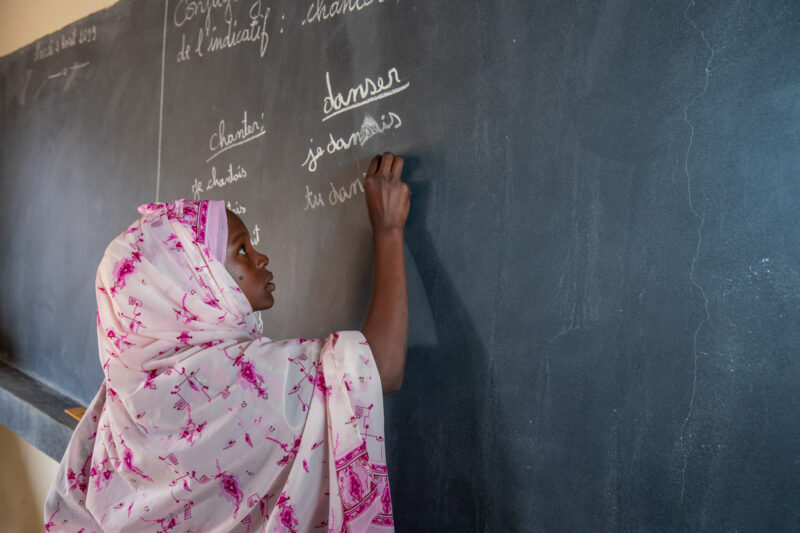 Mardi 2 Avril 2019
de l'indicatif : chanter
chanter
je chantais
danser
je dansais
tu dan